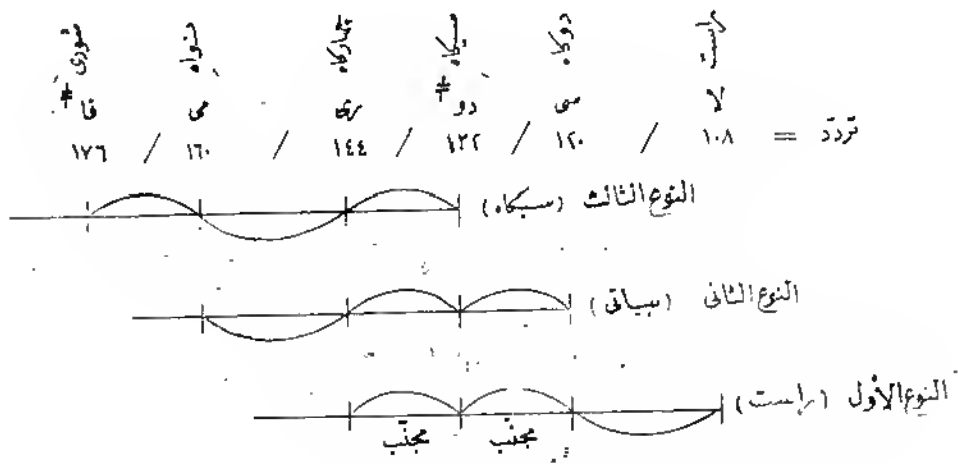 راست دوكاه سيكاه چهاركاه نواه
لا سى دو ‡ رى مى فا ‡
تردد = ١٠٨ / ١٢٠ / ١٣٢ / ١٤٤ / ١٦٠ / ١٧٦
النوع الثالث (سيكاه)
النوع الثانى (بياتى)
النوع الأول (راست)
مجنّب مجنّب